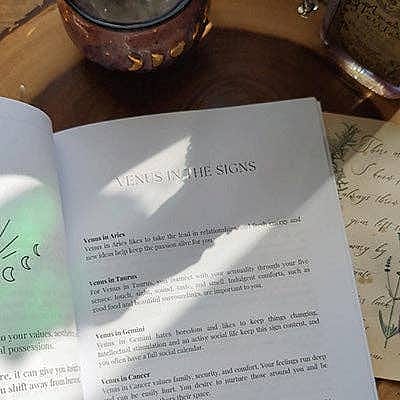 to your values, aesthetic
al possessions.
re, it can give you
u shift away from
VENUS IN THE SIGNS
Venus in Aries
Venus in Aries likes to take the lead in relationships, and fresh energy and
new ideas help keep the passion alive for you.
Venus in Taurus
For Venus in Taurus, you connect with your sensuality through your five
senses: touch, sight, sound, taste, and smell. Indulgent comforts, such as
good food and beautiful surroundings, are important to you.
Venus in Gemini
Venus in Gemini hates boredom and likes to keep things changing.
Intellectual stimulation and an active social life keep this sign content, and
you often have a full social calendar.
Venus in Cancer
Venus in Cancer values family, security, and comfort. Your feelings run deep
and can be easily hurt. You desire to nurture those around you and be
their space.